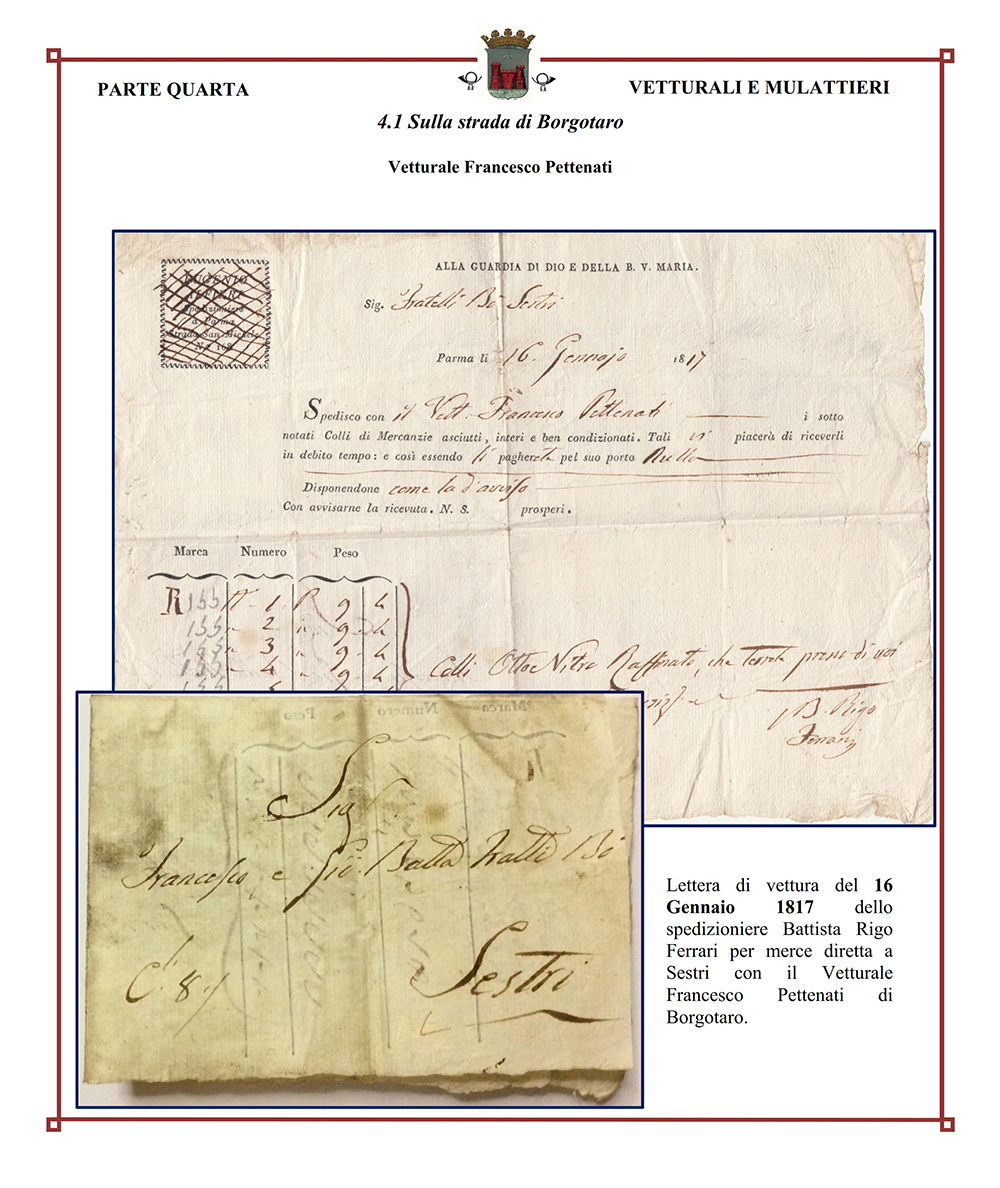 PARTE QUARTA
VETTURALI E MULATTIERI
4.1 Sulla strada di Borgotaro
Vetturale Francesco Pettenati
ALLA GUARDIA DI DIO E DELLA B. V. MARIA.
EUGENIO
ALFIERI
Spedizioniere
a Parma
Strada San Michele
N.
Sig. Fratelli Bò Sestri
Parma li 16. Gennajo 1817
Spedisco con il Vett. Francesco Pettenati i sotto
notati Colli di Mercanzie asciutti, interi e ben condizionati. Tali vi piacerà di riceverli
in debito tempo: e così essendo li pagherete pel suo porto Nullo
Disponendone come la d'avviso
Con avvisarne la ricevuta. N. S. prosperi.
Marca Numero Peso
R 155 N 1 P 9 4
155 " 2 " 9 4
155 " 3 " 9 4
155 " 4 " 9 4
Colli Otto Nitro Raffinato, che terrete presso di voi
B. Rigo
Ferrari
Marca Numero Peso
Sigri
Francesco e Gio Batta Fratti Bò
Cli 8./
Sestri
Lettera di vettura del 16
Gennaio 1817 dello
spedizioniere Battista Rigo
Ferrari per merce diretta a
Sestri con il Vetturale
Francesco Pettenati di
Borgotaro.